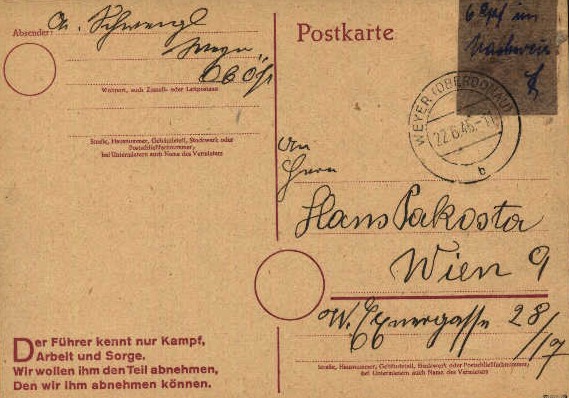 Absender:
Schwengl
Wohnort, auch Zustell- oder Leitpostamt
Straße, Hausnummer, Gebäudeteil, Stockwerk oder
Postschließfachnummer,
bei Untermietern auch Name des Vermieters
Postkarte
6 Rpf im
WEYER (OBERDONAU)
22.6.45.-11
b
An
Herrn
Hans Pakosta
Wien 9
28/
/17
Straße, Hausnummer, Gebäudeteil, Stockwerk oder Postschließfachnummer,
bei Untermietern auch Name des Vermieters
Der Führer kennt nur Kampf,
Arbeit und Sorge.
Wir wollen ihm den Teil abnehmen,
Den wir ihm abnehmen können.